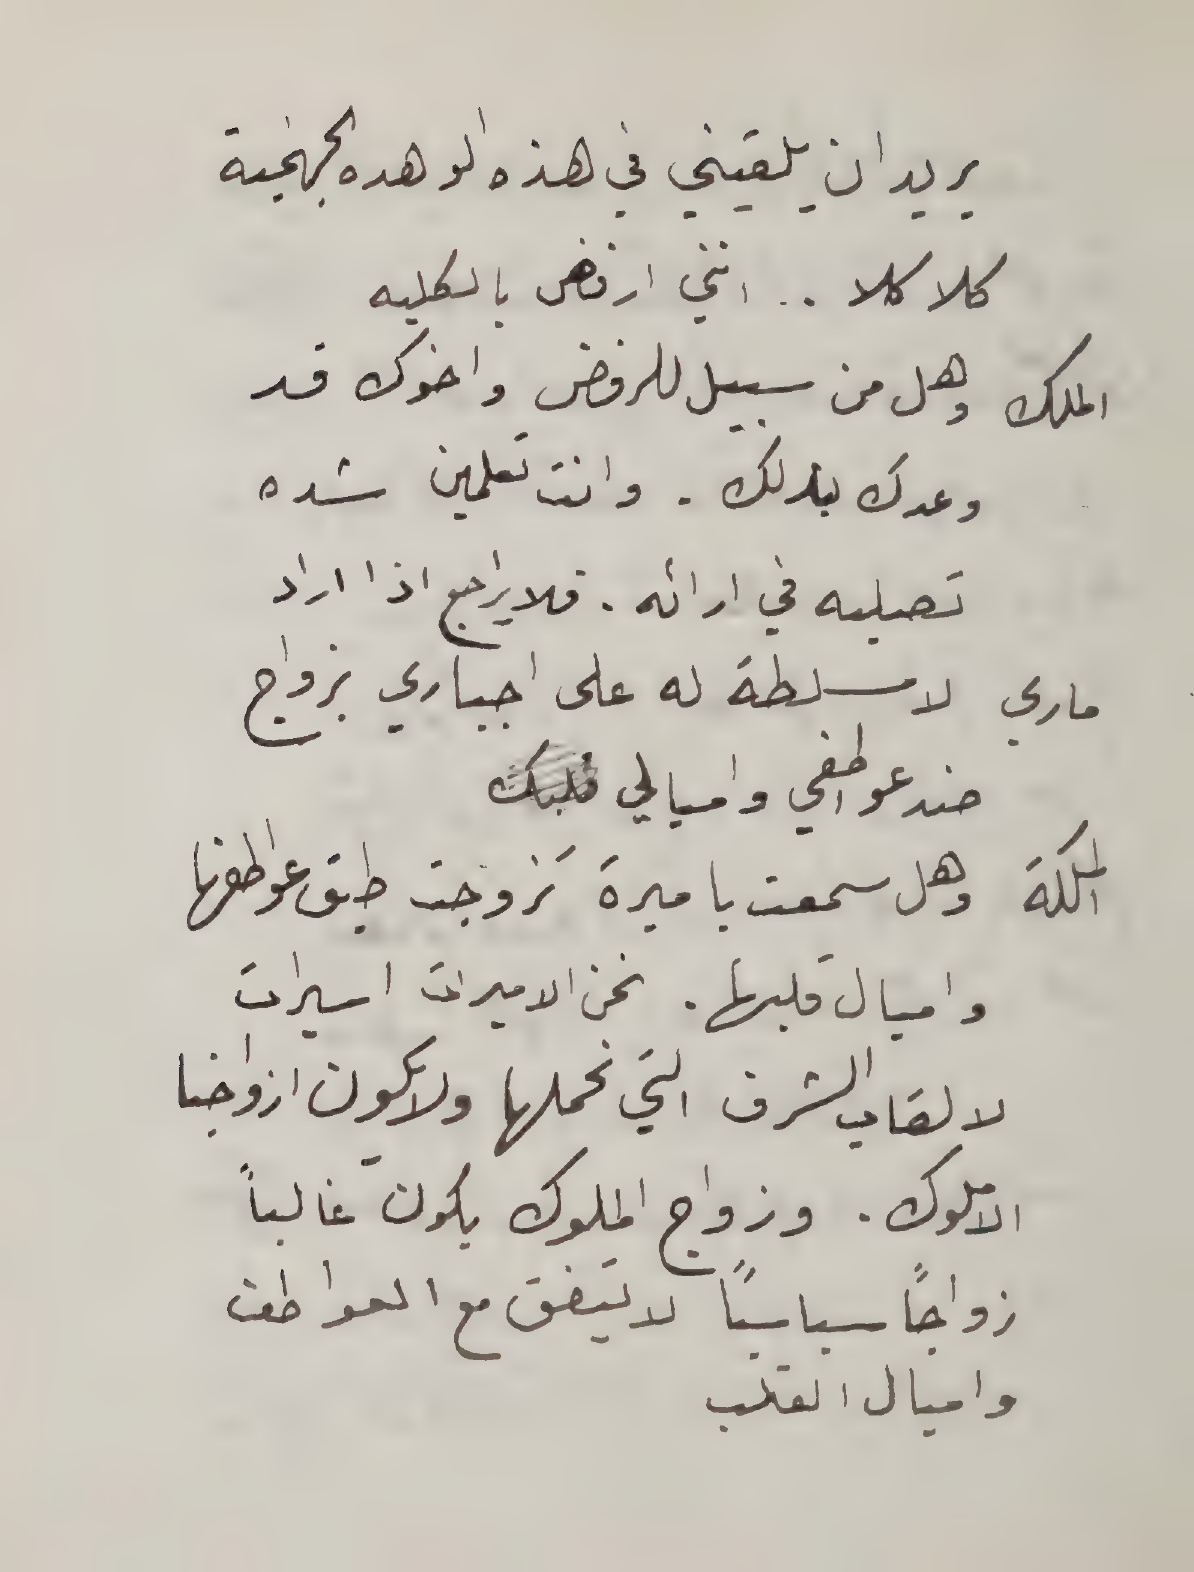 يريد ان يلقيني في هذه الوهده الجهنمية
كلا كلا .. انني ارفض بالكليه
الملك وهل من سبيل للرفض واخوك قد
وعدك بذلك . وانت تعلمين شده
تصلبه في ارائه . فلا يراجع اذا اراد
ماري لا سلطة له على اجباري بزواج
ضد عواطفي واميالي
الملكة وهل سمعت باميرة تزوجت طبق عواطفها
واميال قلبها . نحن الاميرات اسيرات
لالقاب الشرف التي نحملها ولا يكون ازواجنا
الا ملوك . وزواج الملوك يكون غالباً
زواجاً سياسياً لا يتفق مع العواطف
واميال القلب